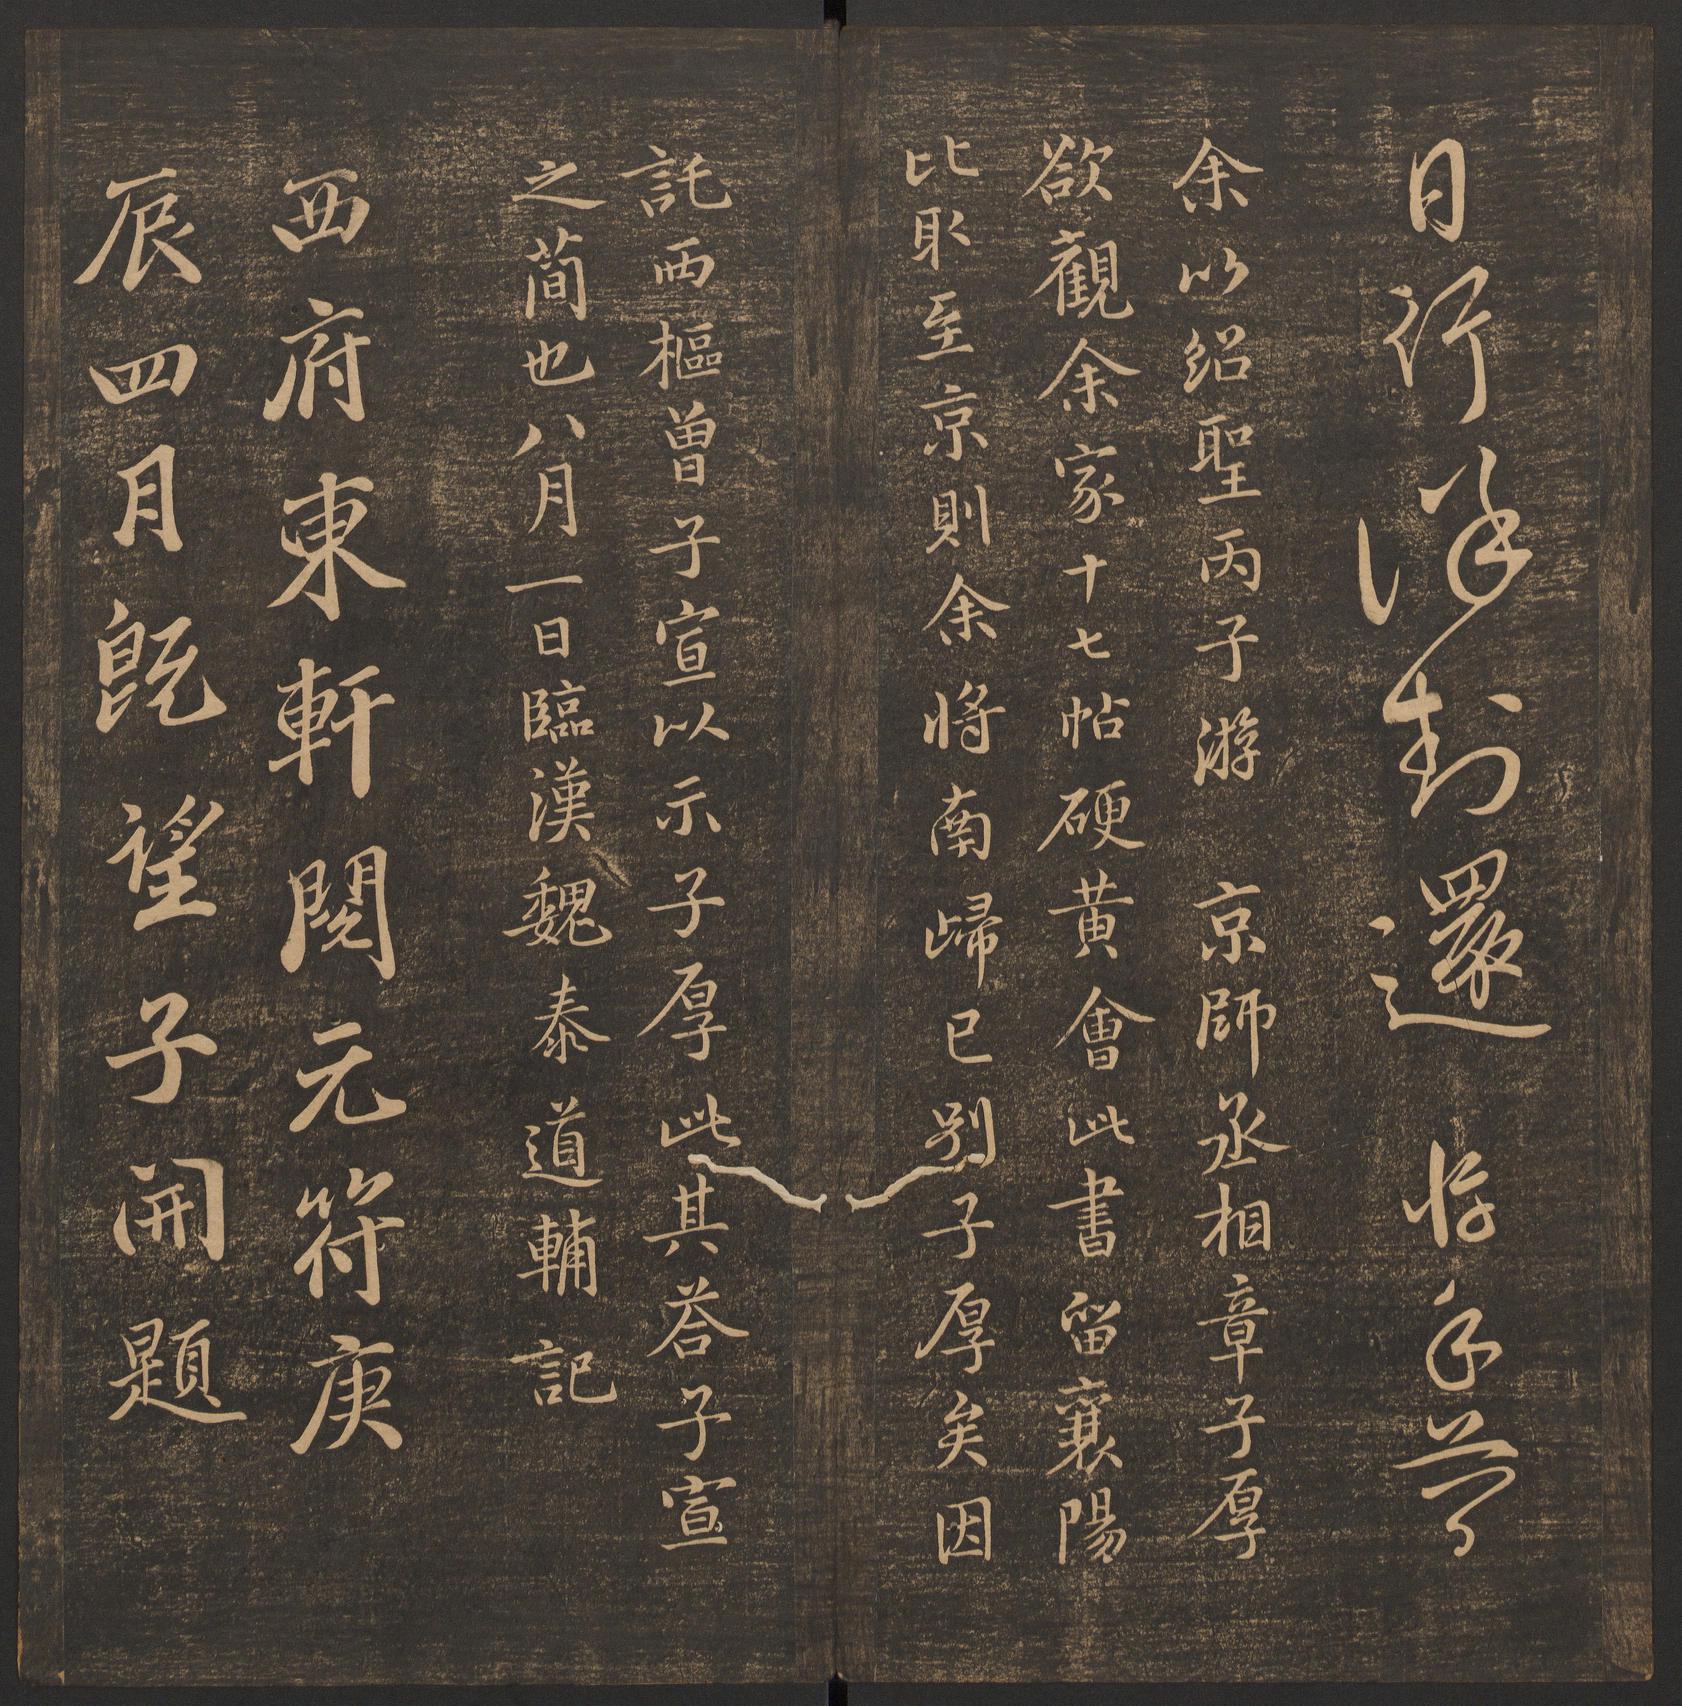 日行封還 惇手
余以紹聖丙子游 京師丞相章子厚
欲觀余家十七帖硬黃會此書留襄陽
比取至京則余將南歸已別子厚矣因
託西樞曾子宣以示子厚此其荅子宣
之簡也八月一日臨漢魏泰道輔記
西府東軒閱元符庚
辰四月旣望子開題